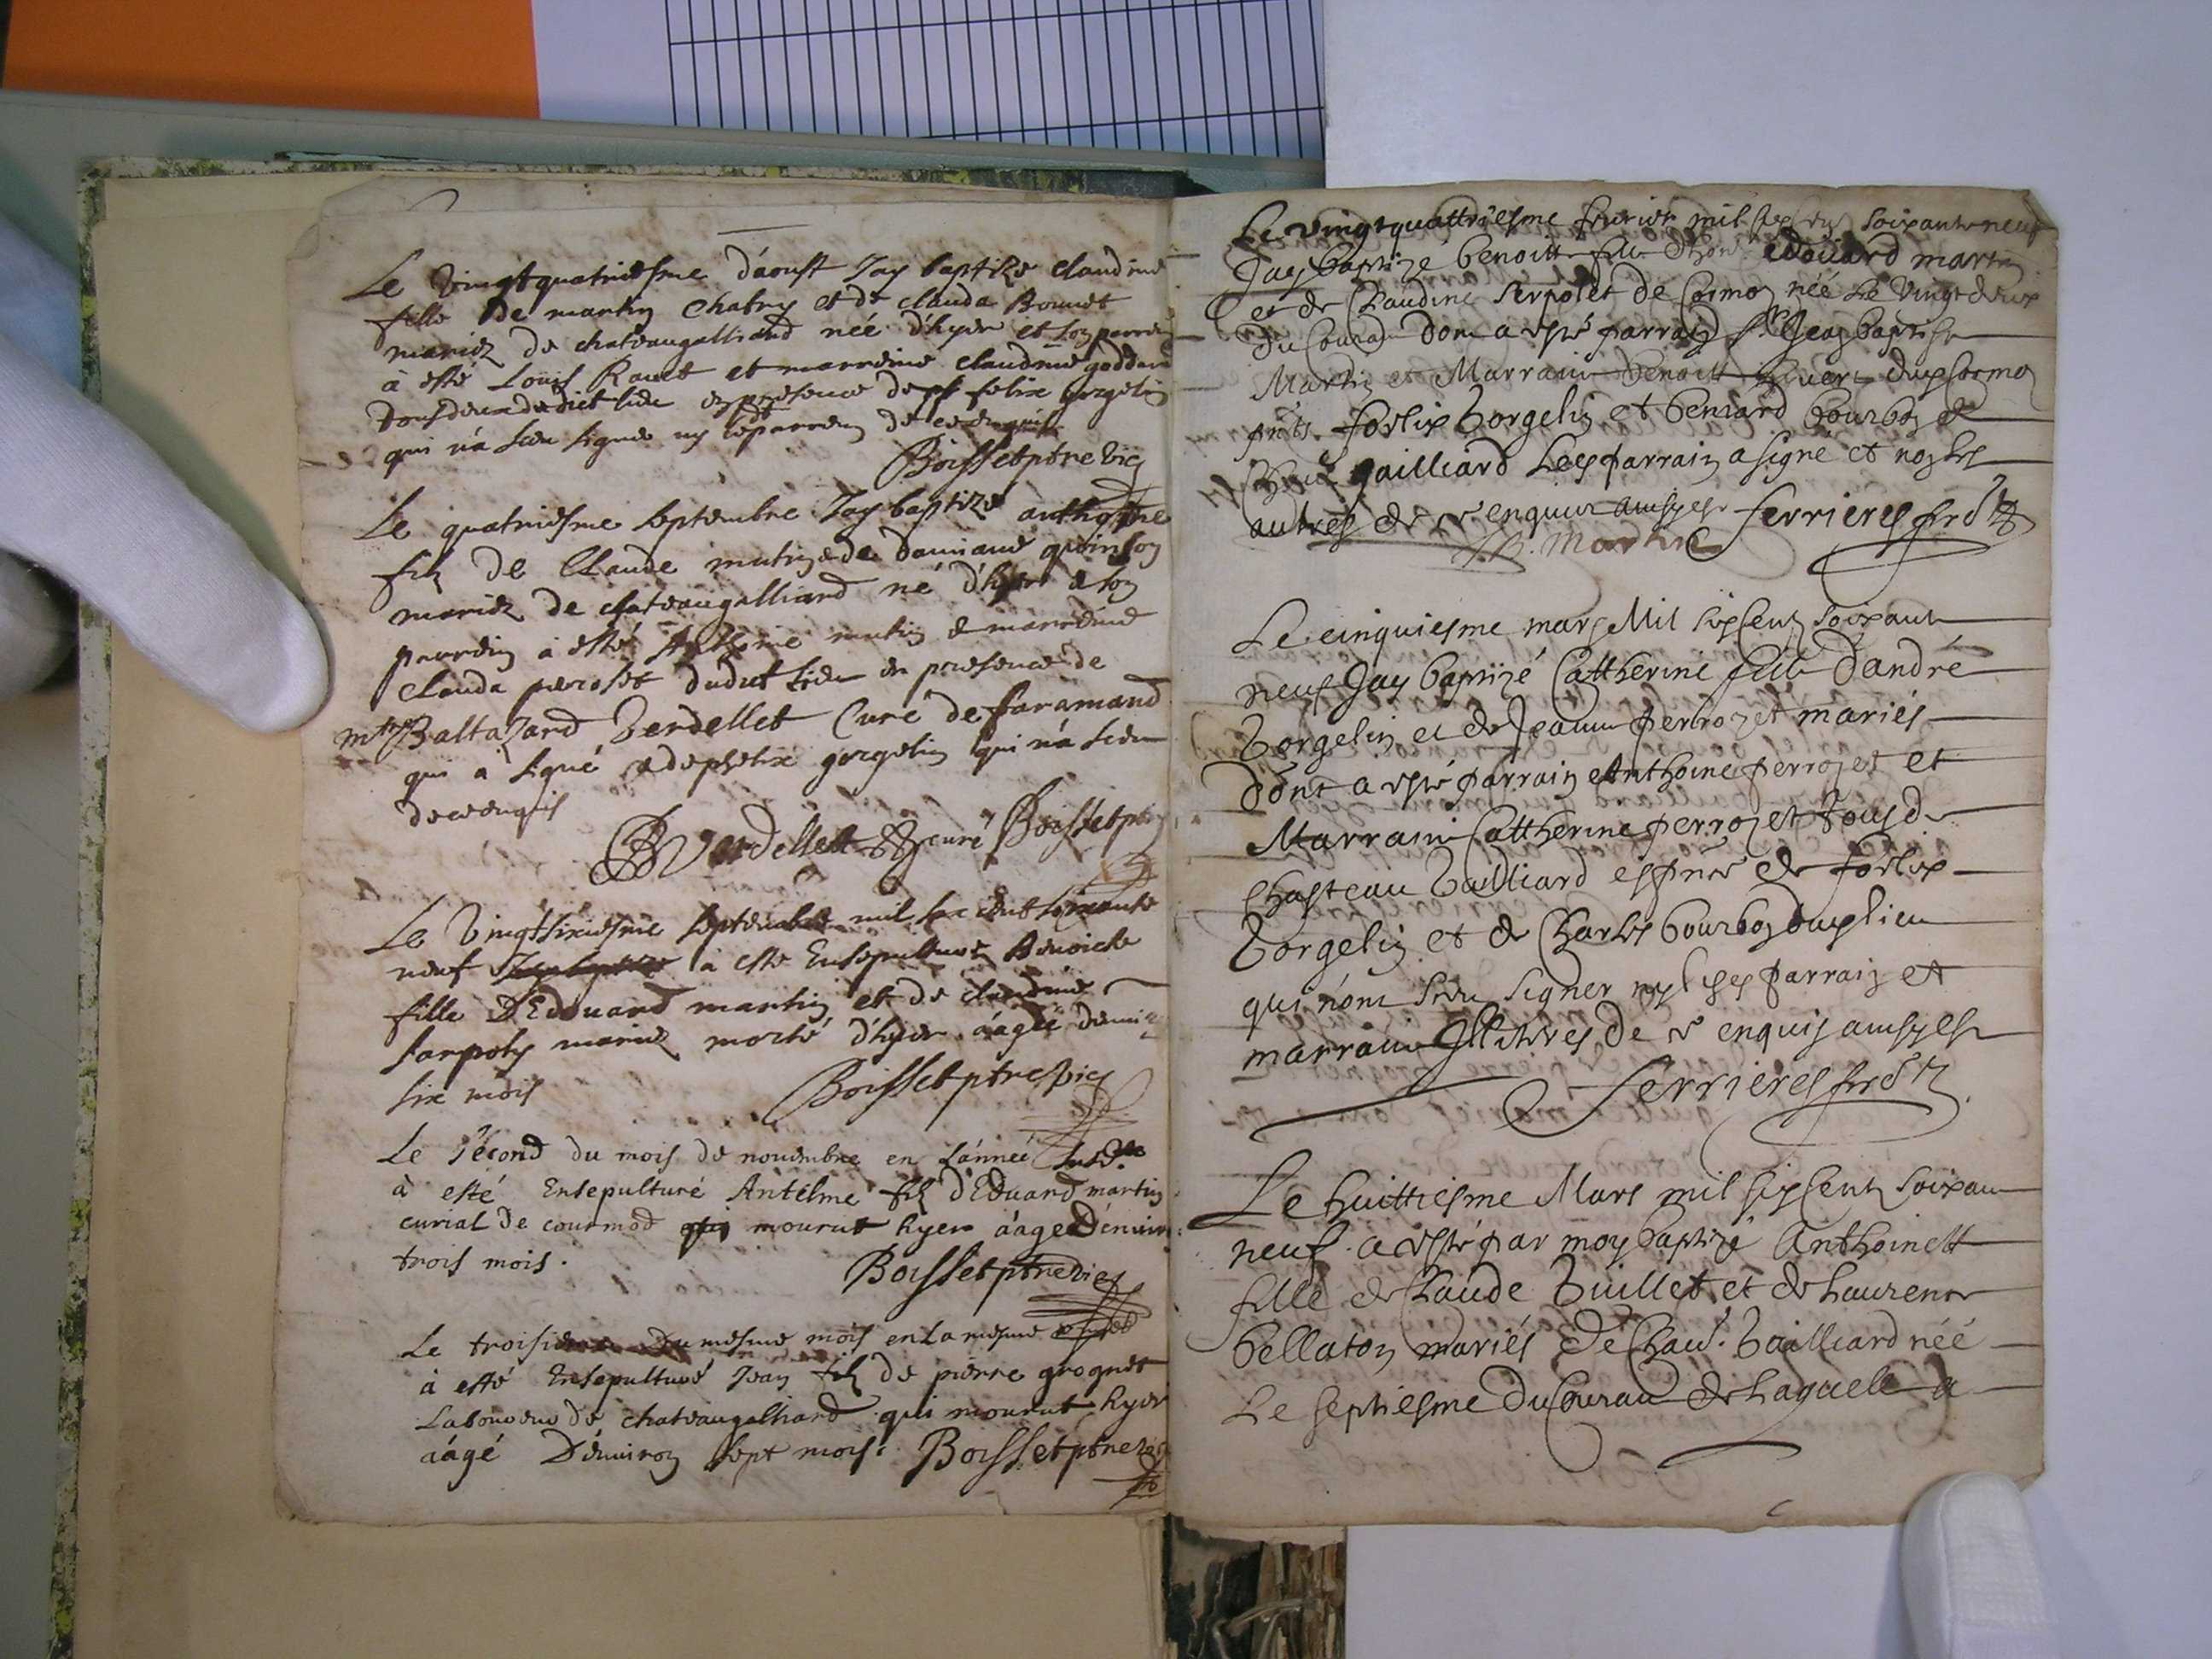 Le vingtquatriesme d'aoust Jay baptizé claudine
fille de martin Chatry et de clauda Bonnet
mariez de chateaugalliard née d'hyer et son parrein
à esté Louis Rauet et marreine claudine goddard
tousdeux dudict lieu en presence de felix gorgelin
qui n'a sceu signer ny le parrein de ce enquis
Boisset ptre vic
Le quatriesme septembre Jay baptizé anthoine
filz de Claude mutin et de damiane quinson
mariez de chateaugalliard né d'hyer et son
parrein a esté Anthoine mutin et marreine
Clauda peroset dudict lieu en presence de
mre Baltazard Verdellet Curé de faramand
qui a signé et de phelix gorgelin qui n'a sceu
de ce enquis
B Verdellet curé Boisset ptre
Le vingtsixiesme septembre mil six cent soixante
neuf Jay baptizé a esté Ensepulturée Benoicte
fille D'Edouard martin et de claudine
sarpoly mariez morte d'hyer aagée d'enuiron
six mois Boisset ptre vic
Le second du mois de nouembre en l'année susdte
à esté Ensepulturé Antelme filz d'Edouard martin
curial de courmod qui mourut hyer aagé D'enuiron
trois mois. Boisset ptre vic
Le troisiesme Du mesme mois en la mesme année
à esté Ensepulturé Jean filz de pierre grognet
Laboureur de chateaugalliard qui mourut hyer
aagé D'enuiron sept mois. Boisset ptre vic
Le vingtquattriesme feurier mil six cens soixante neuf
Jay baptizé benoitte fille d'hon. edoüard martin
et de Claudine serpolet de Cormoz née Le vingt deux
du Courant dont a esté parrain Sr Jean baptiste
Martin et Marraine benoitte dud Cormoz
pnts foelix Gorgelin et benard bourbon de
Chau Gailliard Led parrain a signé et non les
autres de ce enquis ausy est ferrieres
J B. Martin
Le cinquiesme mars Mil six Cens soixante
neuf Jay baptizé Catherine fille d'andré
Gorgelin et de Jeanne perrozet mariés
dont a esté parrain Anthoine perrozet et
Marraine Catherine perrozet Tous de
Chasteau Gailliard es pnce de foelix
Gorgelin et de Charles bourbon dud lieu
qui n'ont sceu signer ny lesd parrain et
marraine Illiteres de ce enquis ausy est
ferrieres
Le huittiesme Mars mil six Cens soixante
neuf a esté par moy baptizé Anthoinette
fille de Claude Guillet et de Laurence
bellaton mariés de Chau. Gailliard née
Le septiesme du Courant de Laquelle a